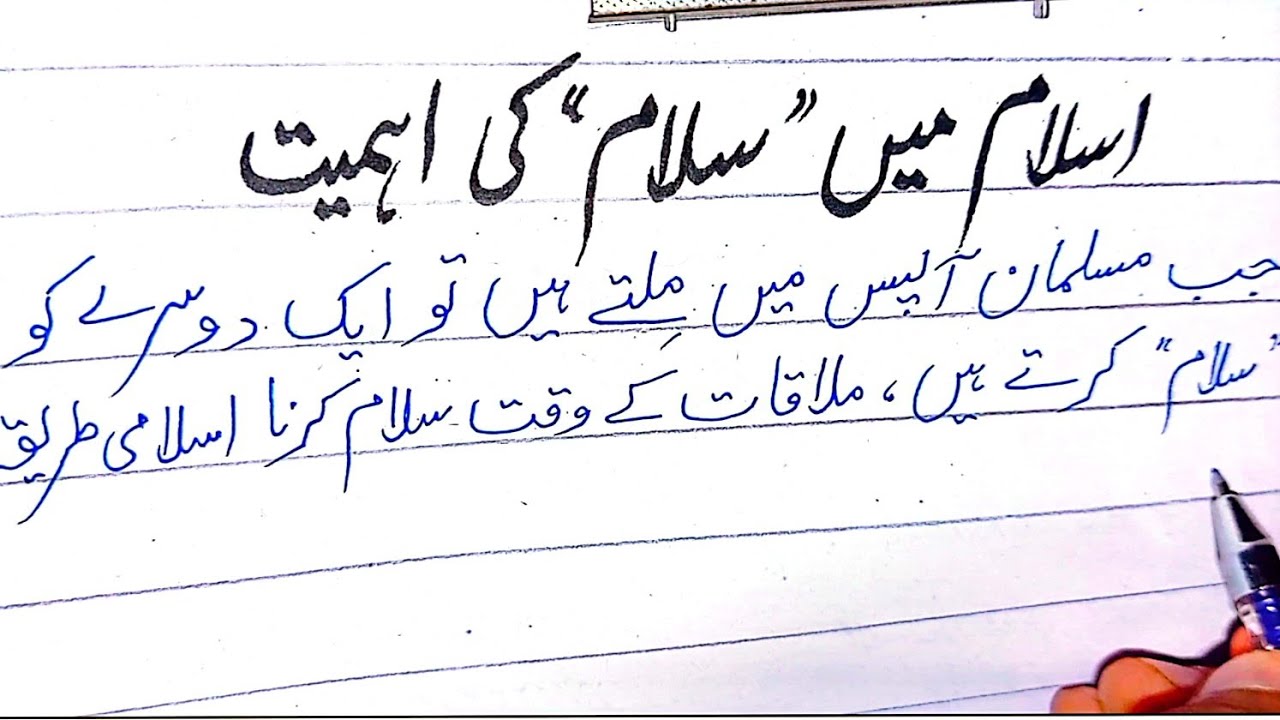 اسلام میں "سلام" کی اہمیت
جب مسلمان آپس میں مِلتے ہیں تو ایک دوسرے کو
"سلام" کرتے ہیں، ملاقات کے وقت سلام کرنا اسلامی طریق